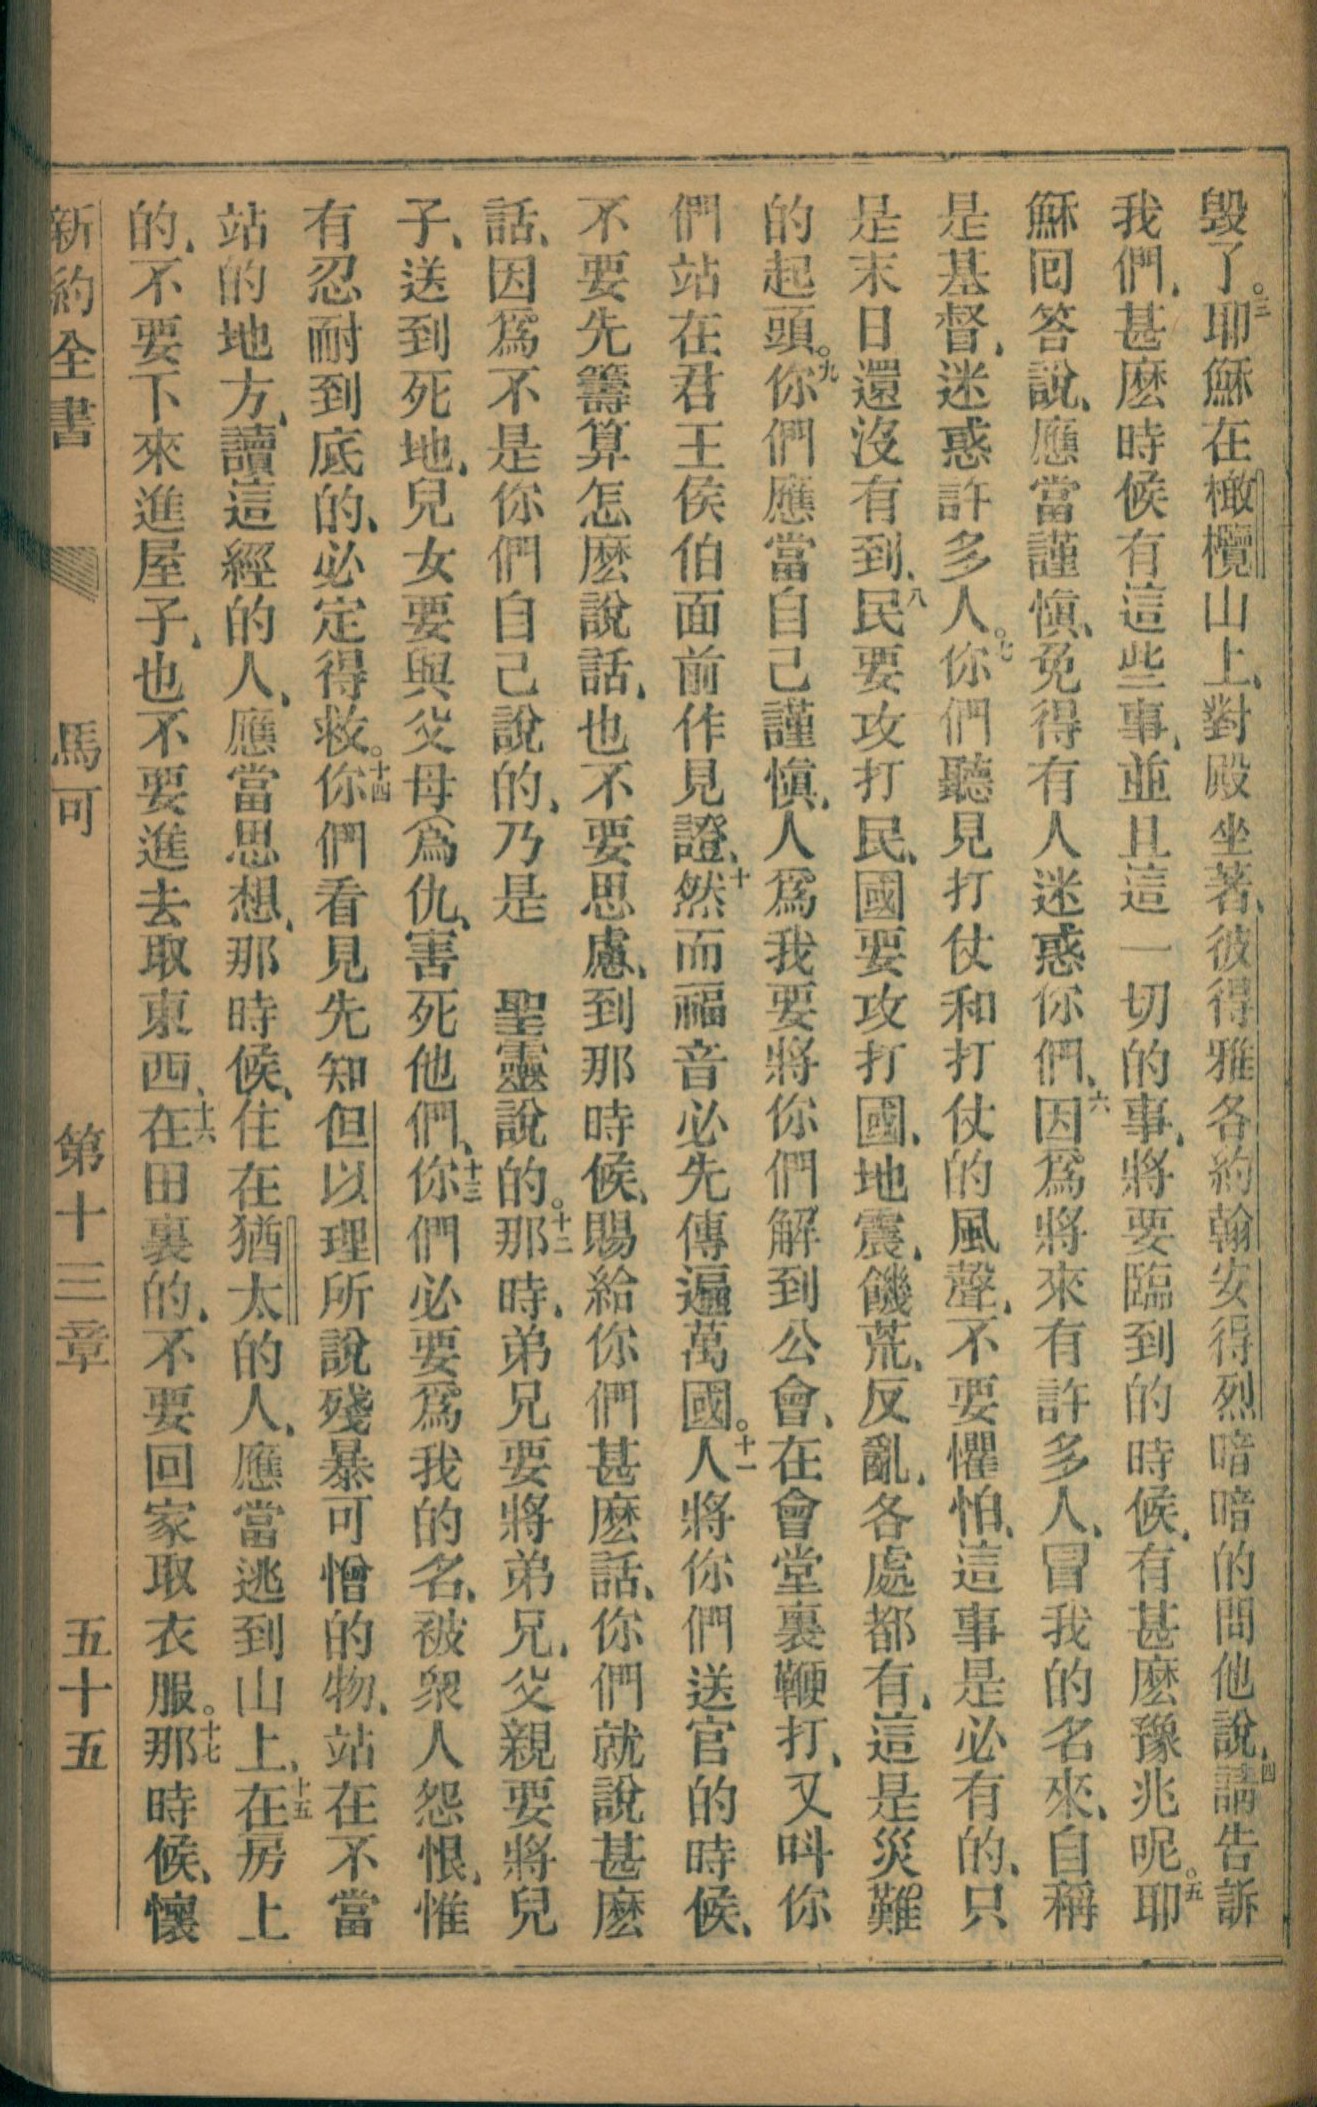 毀了。三耶穌在橄欖山上、對殿坐著、彼得雅各約翰安得烈暗暗的問他說、四請告訴
我們、甚麽時候有這些事、並且這一切的事、將要臨到的時候、有甚麽豫兆呢。五耶
穌回答說、應當謹愼、免得有人迷惑你們、六因爲將來有許多人、冒我的名來、自稱
是基督、迷惑許多人。七你們聽見打仗和打仗的風聲、不要懼怕、這事是必有的、只
是末日還沒有到、八民要攻打民、國要攻打國、地震、饑荒、反亂、各處都有、這是災難
的起頭。九你們應當自己謹愼、人爲我要將你們解到公會、在會堂裏鞭打、又呌你
們站在君王侯伯面前作見證、十然而福音必先傳遍萬國。十一人將你們送官的時候、
不要先籌算怎麽說話、也不要思慮、到那時候、賜給你們甚麽話、你們就說甚麽
話、因爲不是你們自己說的、乃是 聖靈說的。十二那時、弟兄要將弟兄、父親要將兒
子、送到死地、兒女要與父母爲仇、害死他們、十三你們必要爲我的名、被衆人怨恨、惟
有忍耐到底的、必定得救。十四你們看見先知但以理所說殘暴可憎的物、站在不當
站的地方、讀這經的人、應當思想、那時候、住在猶太的人、應當逃到山上、十五在房上
的、不要下來進屋子、也不要進去取東西、十六在田裏的、不要回家取衣服。十七那時候、懷
新約全書 馬可 第十三章 五十五